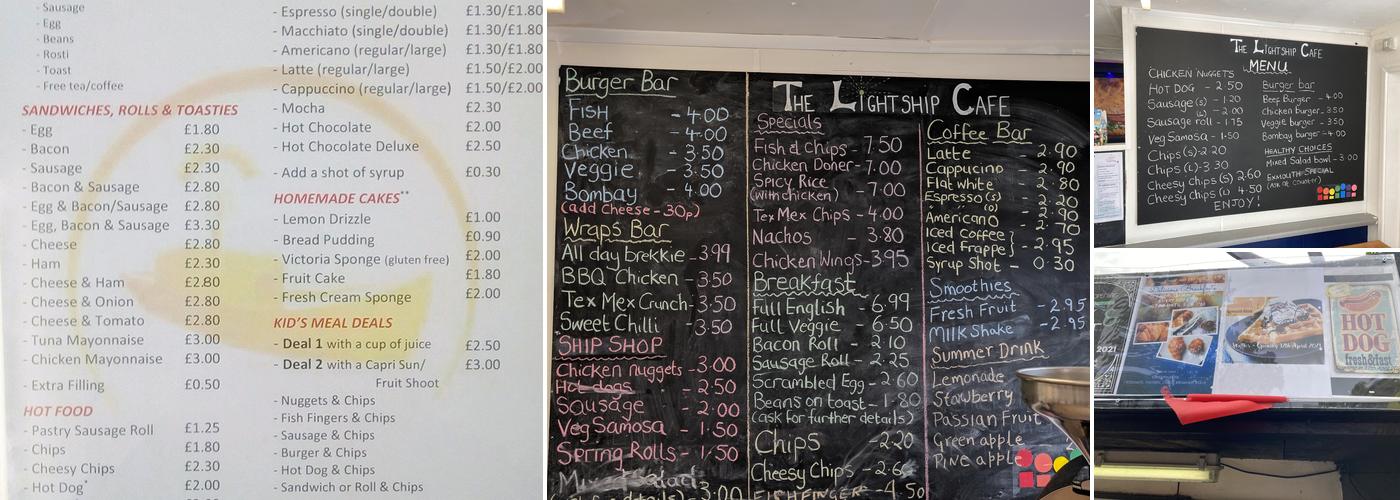 - Sausage
- Egg
- Beans
- Rosti
- Toast
- Free tea/coffee
SANDWICHES, ROLLS & TOASTIES
- Egg £1.80
- Bacon £2.30
- Sausage £2.30
- Bacon & Sausage £2.80
- Egg & Bacon/Sausage £2.80
- Egg, Bacon & Sausage £3.30
- Cheese £2.80
- Ham £2.30
- Cheese & Ham £2.80
- Cheese & Onion £2.80
- Cheese & Tomato £2.80
- Tuna Mayonnaise £3.00
- Chicken Mayonnaise £3.00
- Extra Filling £0.50
HOT FOOD
- Pastry Sausage Roll £1.25
- Chips £1.80
- Cheesy Chips £2.30
- Hot Dog* £2.00
- Espresso (single/double) £1.30/£1.80
- Macchiato (single/double) £1.30/£1.80
- Americano (regular/large) £1.30/£1.80
- Latte (regular/large) £1.50/£2.00
- Cappuccino (regular/large) £1.50/£2.00
- Mocha £2.30
- Hot Chocolate £2.00
- Hot Chocolate Deluxe £2.50
- Add a shot of syrup £0.30
HOMEMADE CAKES**
- Lemon Drizzle £1.00
- Bread Pudding £0.90
- Victoria Sponge (gluten free) £2.00
- Fruit Cake £1.80
- Fresh Cream Sponge £2.00
KID'S MEAL DEALS
- Deal 1 with a cup of juice £2.50
- Deal 2 with a Capri Sun/ £3.00
Fruit Shoot
- Nuggets & Chips
- Fish Fingers & Chips
- Sausage & Chips
- Burger & Chips
- Hot Dog & Chips
- Sandwich or Roll & Chips
Burger Bar
Fish - 4.00
Beef - 4.00
Chicken - 3.50
Veggie - 3.50
Bombay - 4.00
(add cheese - 30p)
Wraps Bar
All day brekkie - 3.99
BBQ Chicken - 3.50
Tex Mex Crunch - 3.50
Sweet Chilli - 3.50
SHIP SHOP
Chicken nuggets - 3.00
Hot dogs - 2.50
Sausage - 2.00
Veg Samosa - 1.50
Spring Rolls - 1.50
Mixed Salad
3.00
THE LIGHTSHIP CAFE
Specials
Fish & Chips - 7.50
Chicken Doner - 7.00
Spicy Rice
(with chicken) - 7.00
Tex Mex Chips - 4.00
Nachos - 3.80
Chicken Wings - 3.95
Breakfast
Full English - 6.99
Full Veggie - 6.50
Bacon Roll - 2.10
Sausage Roll - 2.25
Scrambled Egg - 2.60
Beans on toast - 1.80
(ask for further details)
Chips - 2.20
Cheesy Chips - 2.6
FISHFINGER - 4.50
Coffee Bar
Latte - 2.90
Cappucino - 2.90
Flat white - 2.80
Espresso (s) - 2.20
Americano - 2.70
Iced Coffee
Iced Frappe } - 2.95
Syrup Shot - 0.30
Smoothies
Fresh Fruit - 2.95
Milk Shake - 2.95
Summer Drink
Lemonade
Stawberry
Passian Fruit
Green apple
Pine apple
THE LIGHTSHIP CAFE
MENU
CHICKEN NUGGETS
HOT DOG - 2.50
Sausage (s) - 1.20
(L) - 2.00
Sausage roll - 1.75
Veg Samosa - 1.50
Chips (s) - 2.20
Chips (L) - 3.30
Cheesy Chips (s) 2.60
Cheesy Chips (L) 4.50
ENJOY!
Burger bar
Beef Burger - 4.00
Chicken burger - 3.50
Veggie burger - 3.50
Bombay burger - 4.00
HEALTHY CHOICES
Mixed Salad bowl - 3.00
EXMOUTH SPECIAL
(ASK AT COUNTER)
2021
HOT
DOG
fresh & fast